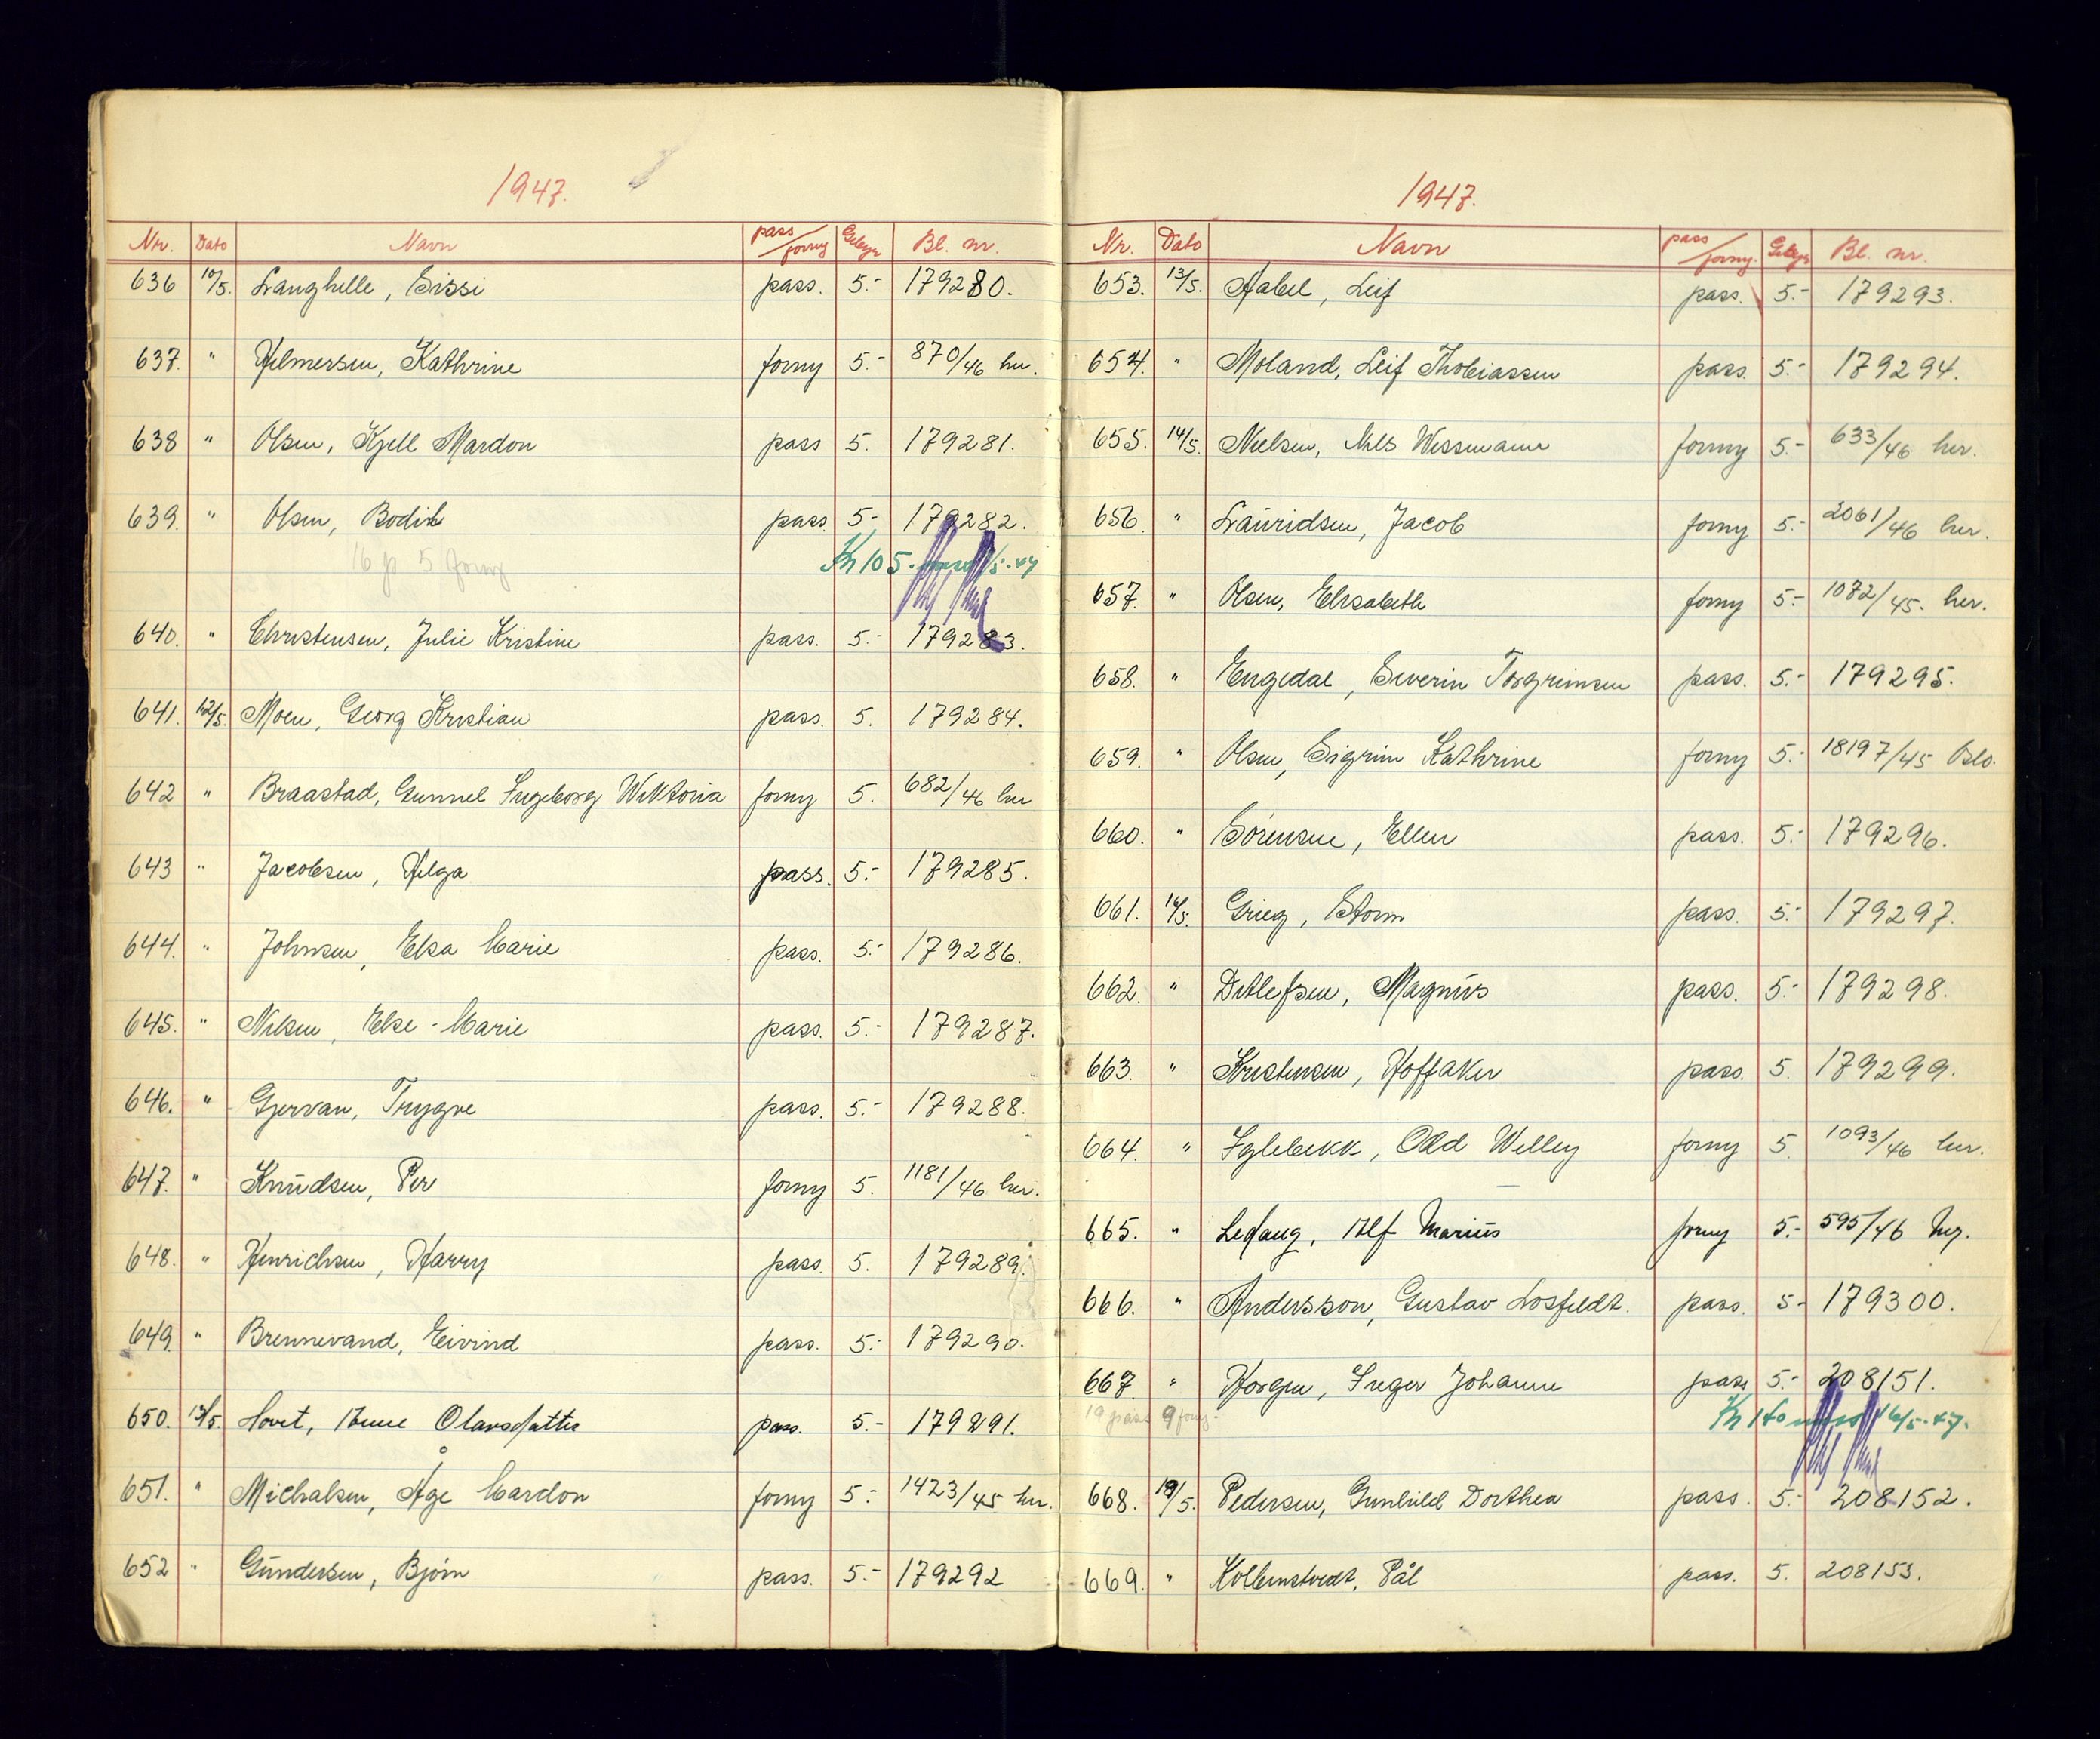 1947.
Nr. Dato Navn pass/forny Gebyr Bl. nr.
636 10/5. Langhelle, Sissi pass. 5.- 179280.
637. " Hilmersen, Kathrine forny 5.- 870/46 her.
638 " Olsen, Kjell Mardon pass 5. 179281.
639. " Olsen, Bodil pass 5- 179282.
16 p 5 forny Kr 105.- /5-47
640. " Christensen, Julie Kristine pass. 5.- 179283.
641. 12/5. Moen, Georg Kristian pass. 5. 179284.
642 " Braastad, Gunnel Ingeborg Wiktoria forny 5. 682/46 her
643 " Jacobsen, Helga pass. 5.- 179285.
644. " Johnsen, Elsa Marie pass. 5.- 179286.
645. " Nilsen, Else-Marie pass. 5.- 179287.
646. " Gjervan, Trygve pass. 5.- 179288.
647. " Knudsen, Per forny 5. 1181/46 her.
648. " Henrichsen, Harry pass. 5. 179289.
649. " Brennevand, Eivind pass. 5.- 179290.
650. 13/5. Hovet, Anne Olavsdatter pass. 5.- 179291.
651. " Michalsen, Åge Mardon forny 5.- 1423/45 her.
652 " Gundersen, Bjørn pass. 5.- 179292
1947.
Nr. Dato Navn pass/forny. Gebyr Bl. nr.
653. 13/5. Aabel, Leif pass. 5.- 179293.
654. " Moland, Leif Thobiassen pass. 5.- 179294.
655. 14/5. Nielsen, Nils Wessmann forny 5.- 633/46 her.
656. " Lauridsen, Jacob forny 5.- 2061/46 her.
657. " Olsen, Elisabeth forny 5.- 1072/45. her.
658. " Engedal, Severin Torgrimsen pass. 5.- 179295.
659. " Olsen, Sigrun Kathrine forny 5.- 18197/45 Oslo.
660. " Sørensen, Ellen pass. 5.- 179296.
661. 16/5. Grieg, Storm pass. 5.- 179297.
662. " Ditlefsen, Magnus pass. 5.- 179298.
663. " Kristensen, Hoffaker pass. 5. 179299.
664. " Iglebekk, Odd Willy forny 5. 1093/46 her.
665. " Ledaug, Alf Marius forny 5.- 595/46 her.
666. " Andersson, Gustav Losfeldt. pass. 5- 179300.
667. " Horgen, Inger Johanne pass 5.- 208151.
19 pass 9 forny. Kr 140 16/5-47.
668. 19/5. Pedersen, Gunhild Dorthea pass. 5.- 208152.
669. " Pål pass. 5. 208153.